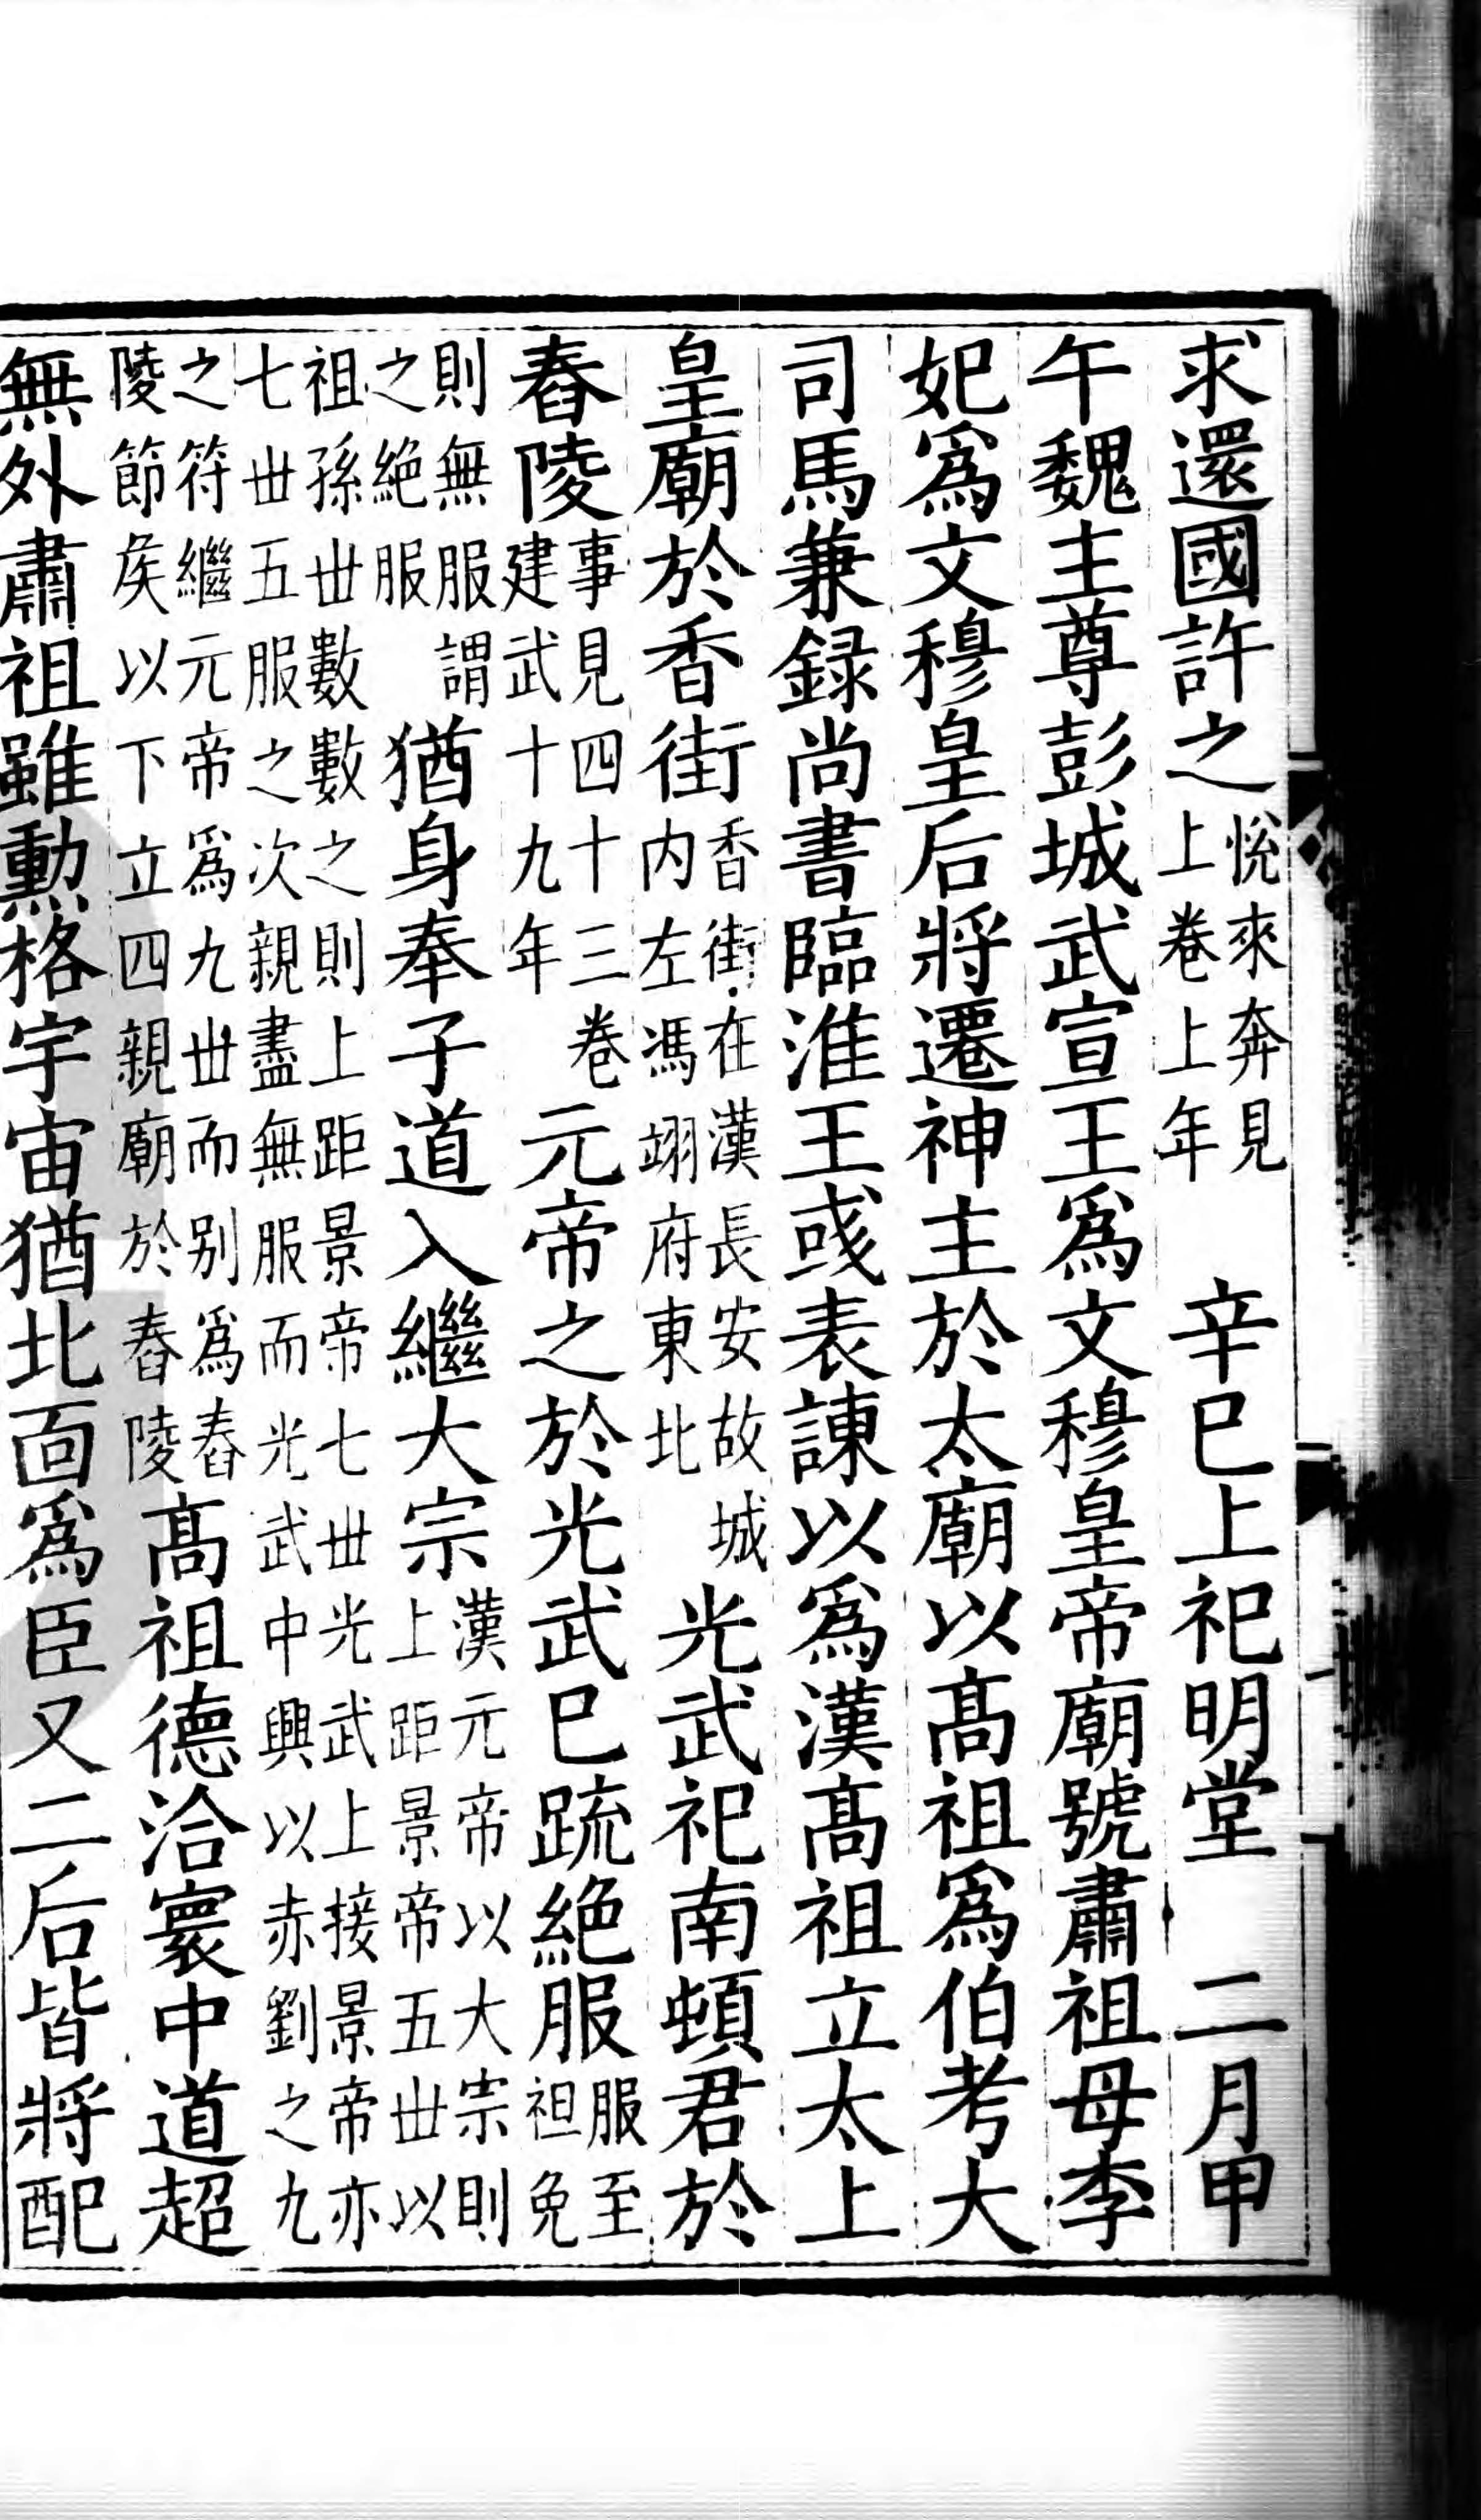 求還國許之悅來奔見上卷上年　辛巳上祀明堂　二月甲
午魏主尊彭城武宣王爲文穆皇帝廟號肅祖母李
妃爲文穆皇后將遷神主於太廟以髙祖爲伯考大
司馬兼録尚書臨淮王彧表諫以爲漢髙祖立太上
皇廟於香街香街在漢長安故城内左馮翊府東北光武祀南頓君於
舂陵事見四十三卷建武十九年元帝之於光武巳疏絶服服至袒免
則無服謂之絶服猶身奉子道入繼大宗漢元帝以大宗則上距景帝五丗以
祖孫丗數數之則上距景帝七丗光武上接景帝亦七丗五服之次親盡無服而光武中興以赤劉之九
之符繼元帝爲九丗而别爲舂陵節矦以下立四親廟於舂陵髙祖德洽寰中道超
無外肅祖雖勲格宇宙猶北面爲臣又二后皆將配